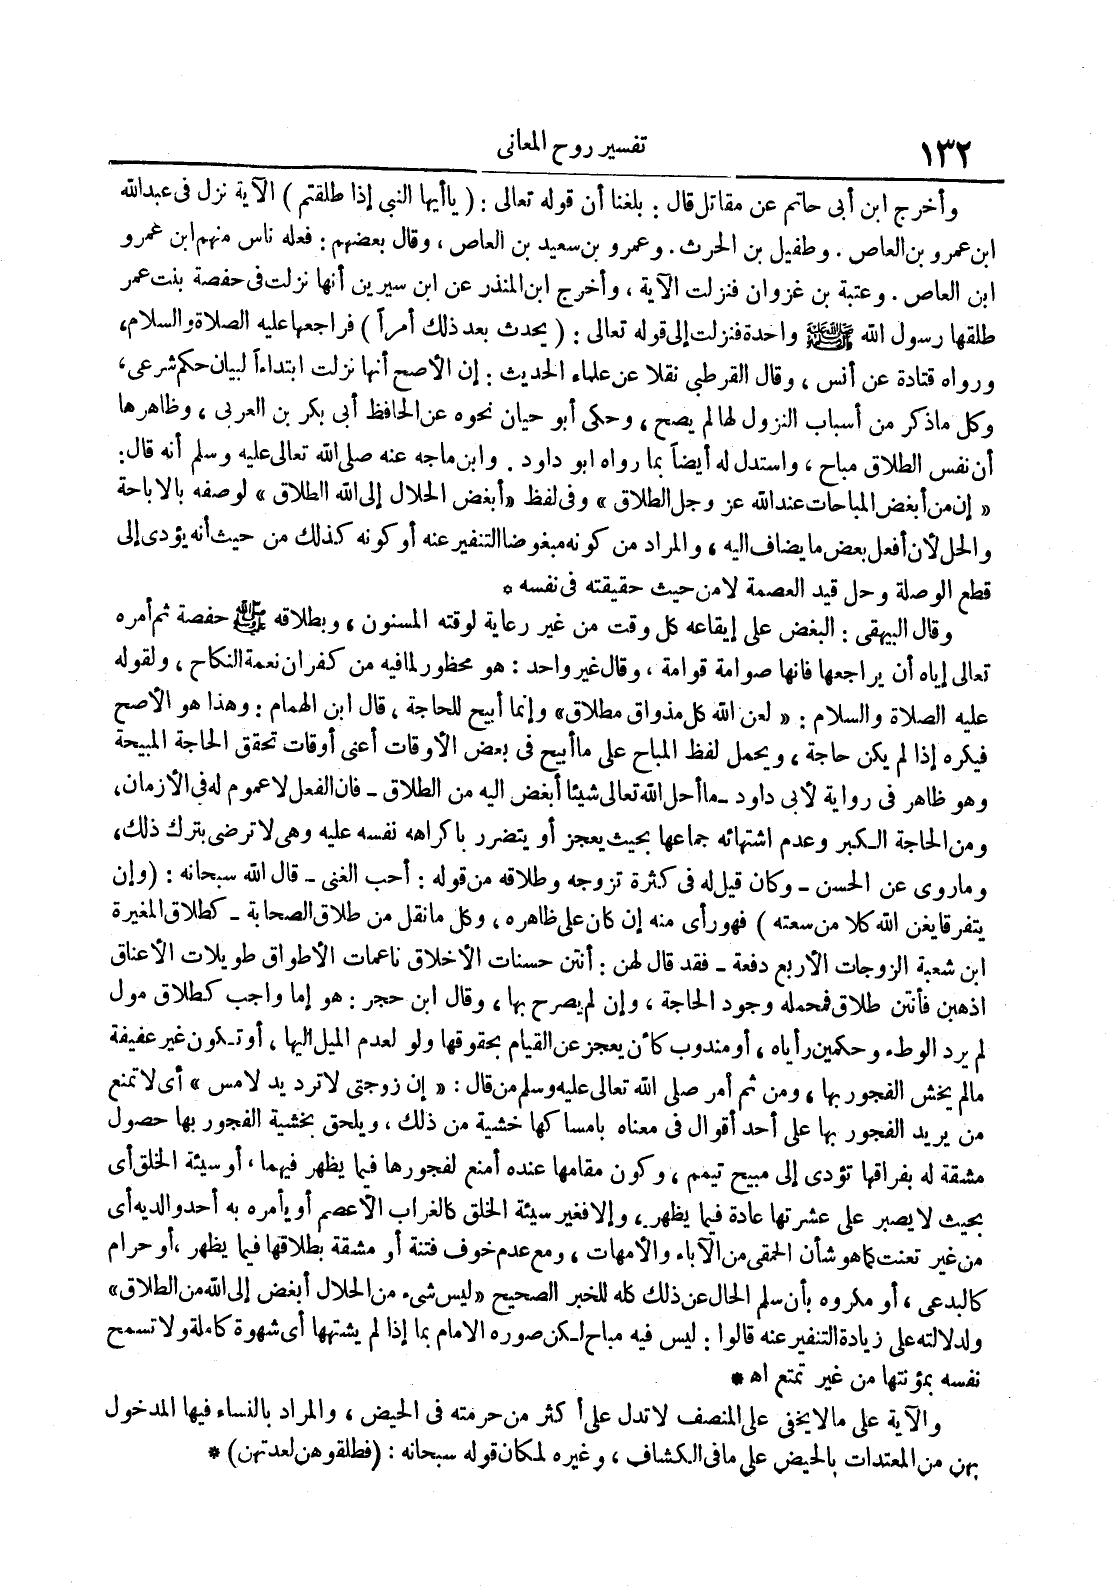 ١٣٢
تفسير روح المعانى
وأخرج ابن أبى حاتم عن مقاتل قال : بلغنا أن قوله تعالى : ( ياأيها النبى إذا طلقتم ) الآية نزل فى عبد الله
ابن عمرو بن العاص . وطفيل بن الحرث . وعمرو بن سعيد بن العاص ، وقال بعضهم : فعله ناس منهم ابن عمرو
ابن العاص . وعتبة بن غزوان فنزلت الآية ، وأخرج ابن المنذر عن ابن سيرين أنها نزلت فى حفصة بنت عمر
طلقها رسول الله ﷺ واحدة فنزلت إلى قوله تعالى : ( يحدث بعد ذلك أمراً ) فراجعها عليه الصلاة والسلام،
ورواه قتادة عن أنس ، وقال القرطبي نقلا عن علماء الحديث : إن الأصح أنها نزلت ابتداءاً لبيان حكم شرعى ،
وكل ماذكر من أسباب النزول لها لم يصح ، وحكى أبو حيان نحوه عن الحافظ أبى بكر بن العربى ، وظاهرها
أن نفس الطلاق مباح ، واستدل له أيضاً بما رواه ابو داود . وابن ماجه عنه صلى الله تعالى عليه وسلم أنه قال :
« إن من أبغض المباحات عند الله عز وجل الطلاق » وفى لفظ « أبغض الحلال إلى الله الطلاق » لوصفه بالاباحة
والحل لأن أفعل بعض ما يضاف اليه ، والمراد من كونه مبغوضا التنفير عنه أو كونه كذلك من حيث أنه يؤدى إلى
قطع الوصلة وحل قيد العصمة لا من حيث حقيقته فى نفسه *
وقال البيهقى : البغض على إيقاعه كل وقت من غير رعاية لوقته المسنون ، وبطلاقه ﷺ حفصة ثم أمره
تعالى إياه أن يراجعها فانها صوامة قوامة ، وقال غير واحد : هو محظور لما فيه من كفران نعمة النكاح ، ولقوله
عليه الصلاة والسلام : « لعن الله كل مذواق مطلاق» وإنما أبيح للحاجة ، قال ابن الهمام : وهذا هو الأصح
فيكره إذا لم يكن حاجة ، ويحمل لفظ المباح على ماأبيح فى بعض الأوقات أعنى أوقات تحقق الحاجة المبيحة
وهو ظاهر فى رواية لأبى داود ـ ماأحل الله تعالى شيئا أبغض اليه من الطلاق ـ فان الفعل لا عموم له فى الأزمان،
ومن الحاجة الكبر وعدم اشتهائه جماعها بحيث يعجز أو يتضرر باكراهه نفسه عليه وهى لا ترضى بترك ذلك،
وماروى عن الحسن ـ وكان قيل له فى كثرة تزوجه وطلاقه من قوله : أحب الغنى ـ قال الله سبحانه : (وإن
يتفرقا يغن الله كلا من سعته ) فهو رأى منه إن كان على ظاهره ، وكل مانقل من طلاق الصحابة ـ كطلاق المغيرة
ابن شعبة الزوجات الأربع دفعة ـ فقد قال لهن : أنتن حسنات الأخلاق ناعمات الأطواق طويلات الأعناق
اذهبن فأنتن طلاق فمحمله وجود الحاجة ، وإن لم يصرح بها ، وقال ابن حجر : هو إما واجب كطلاق مول
لم يرد الوطء وحكمين رأياه ، أو مندوب كأن يعجز عن القيام بحقوقها ولو لعدم الميل اليها ، أو تكون غير عفيفة
مالم يخش الفجور بها ، ومن ثم أمر صلى الله تعالى عليه وسلم من قال : « إن زوجتى لا ترد يد لامس » أى لا تمنع
من يريد الفجور بها على أحد أقوال فى معناه بامساكها خشية من ذلك ، ويلحق بخشية الفجور بها حصول
مشقة له بفراقها تؤدى إلى مبيح تيمم ، وكون مقامها عنده أمنع لفجورها فيما يظهر فيهما ، أو سيئة الخلق أى
بحيث لا يصبر على عشرتها عادة فيما يظهر ، وإلا فغير سيئة الخلق كالغراب الأعصم أو يأمره به أحد والديه أى
من غير تعنت كما هو شأن الحمقى من الآباء والأمهات ، ومع عدم خوف فتنة أو مشقة بطلاقها فيما يظهر ،أو حرام
كالبدعى ، أو مكروه بأن سلم الحال عن ذلك كله للخبر الصحيح «ليس شىء من الحلال أبغض إلى الله من الطلاق»
ولدلالته على زيادة التنفير عنه قالوا : ليس فيه مباح لكن صوره الامام بما إذا لم يشتهها أى شهوة كاملة ولا تسمح
نفسه بمؤنتها من غير تمتع اه *
والآية على مالا يخفى على المنصف لا تدل على أكثر من حرمته فى الحيض ، والمراد بالنساء فيها المدخول
بهن من المعتدات بالحيض على مافى الكشاف ، وغيره لمكان قوله سبحانه : (فطلقوهن لعدتهن) *